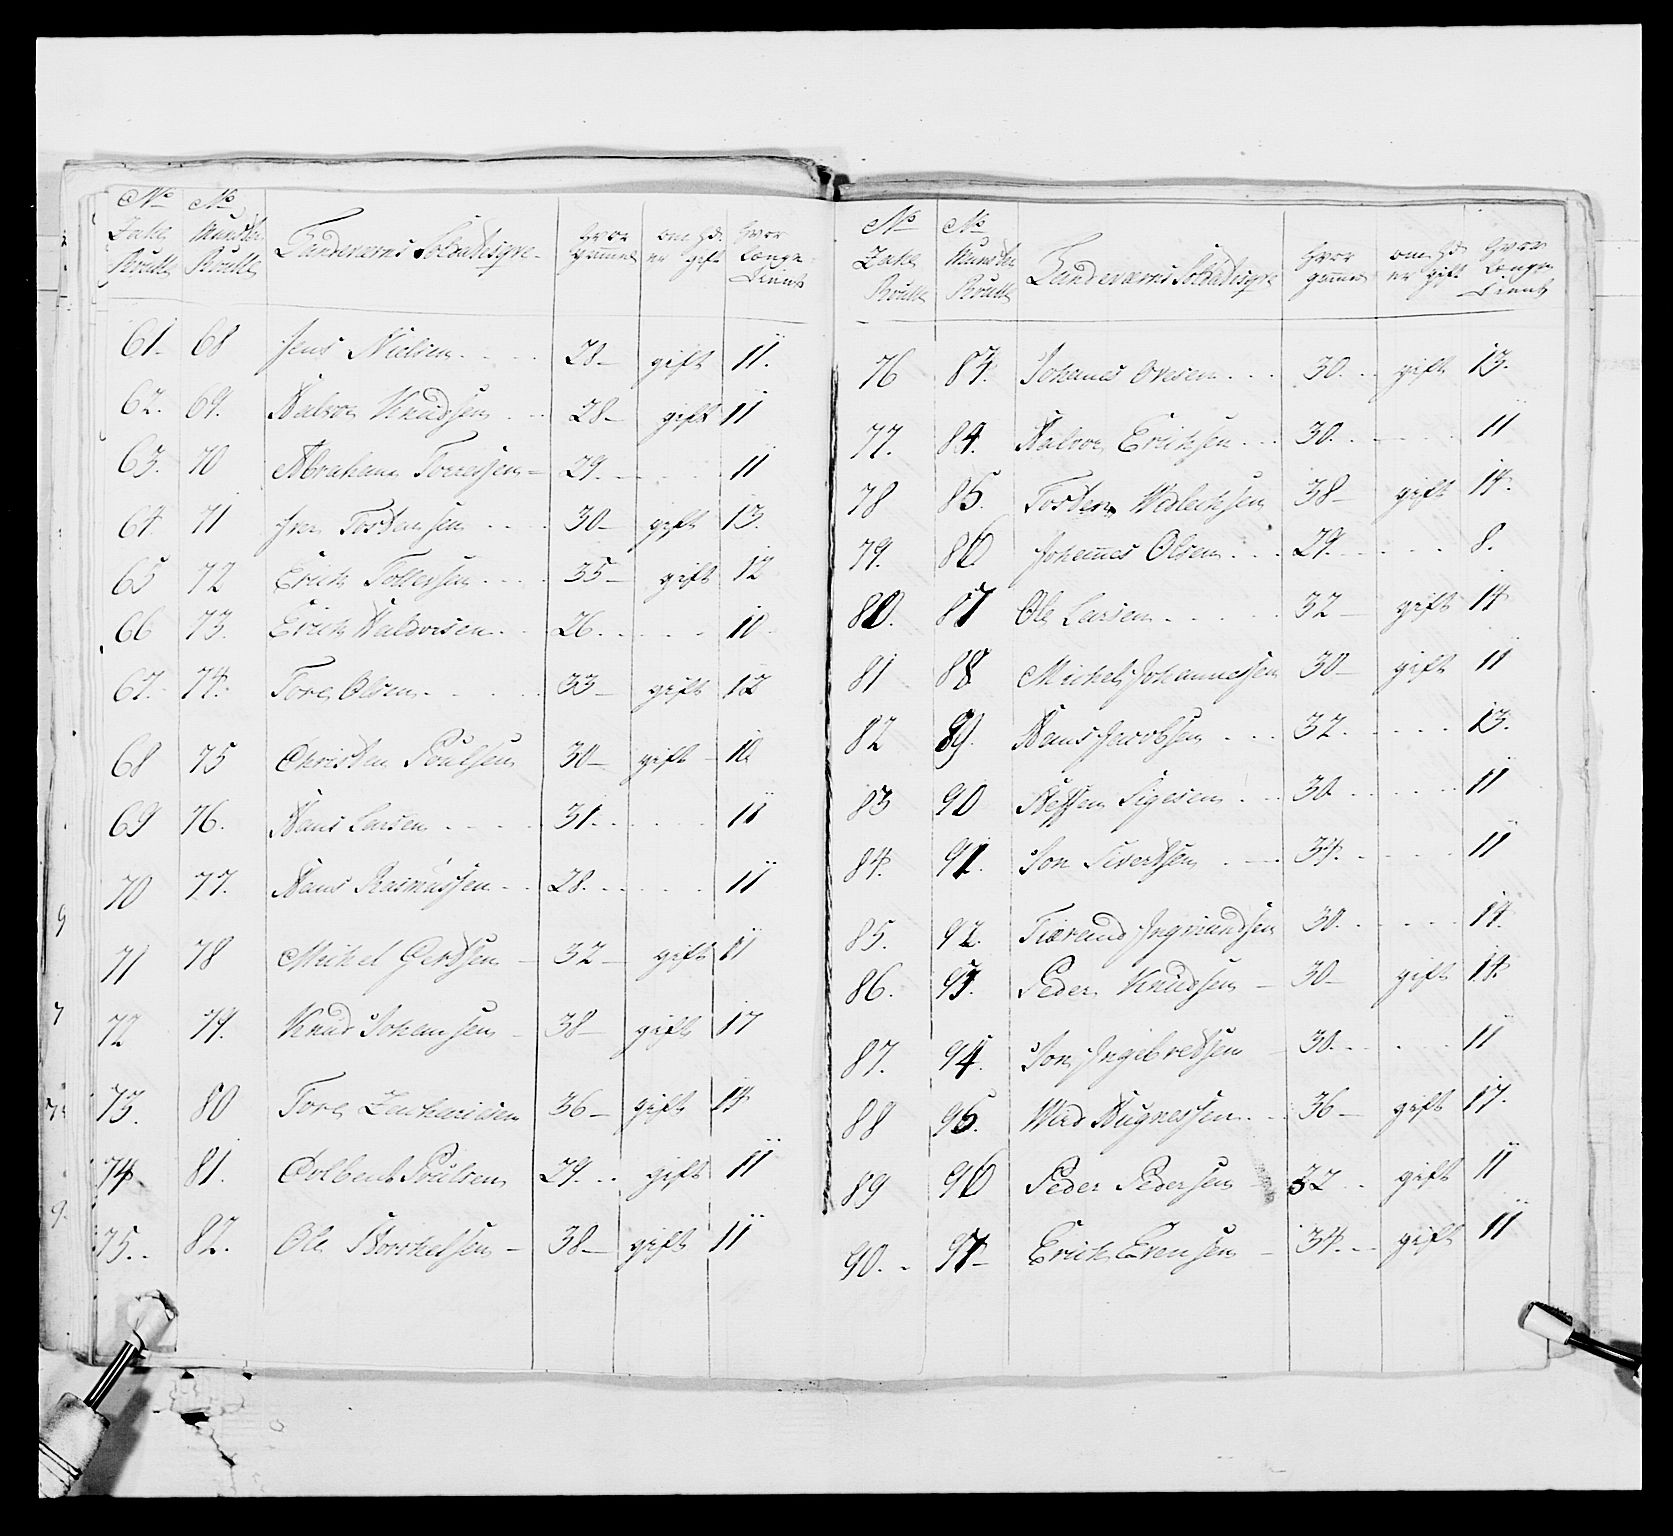 No No
Zahl Munster Landeværns Soldatesqve Hvor om Hd: Hvor
Roulle Roulle gammel er gift Længe
Tient
61. 68 Jens Nielsen 28 gift 11.
62. 69. Halvor Knudsen 28 gift 11
63. 70 Abraham Torressen 29 11
64 71 Iver Tostensen 30 gift 13.
65 72 Erich Tollessen 35 gift 12
66 73. Erich Halvorsen 26 10
67. 74. Tore Olsen 33 gift 12
68 75 Christen Poulsen 30 gift 10
69 76. Hans Larsen 31 11
70 77. Hans Rasmussen 28 11
71 78 Michel Gertsen 32 gift 11
72 79. Knud Johansen 38 gift 17
73. 80 Tore Zachariasen 36 gift 14
74. 81. Poulsen 29 gift 11
75. 82. Ole 38 gift 11
No No
Zahl Munster Landeværns Soldatesqve Hvor om Hd: Hvor
Roulle Roulle gammel er gift Længe
Tient
76 83. Johannes Ovesen 30 gift 13.
77. 84. Halvor Erichsen 30 11
78 85. Tosten 38 gift 14.
79. 86 Johannes Olsen 29 8.
80. 87 Ole Larsen 32 gift 14
81 88 Michel Johannessen 30 gift 11
82 89. Hans Jacobsen 32 13.
83 90 30 11
84. 91. Jon Sivertsen 34 11
85. 92. Ingmundsen 30 14.
86. 93. Peder Knudsen 30 gift 14.
87. 94. Jon Ingebretsen 30 11
88 95. 36 gift 17.
89 96 Peder Pedersen 32 gift 11
90. 97 Erich Evensen 34 gift 11